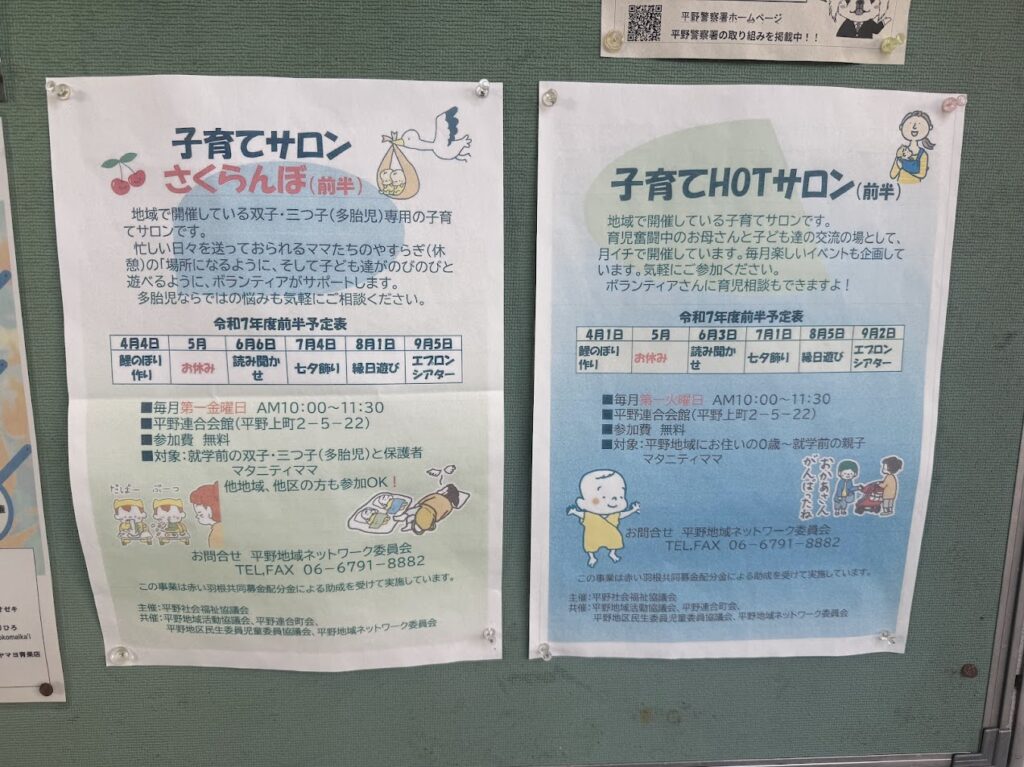 平野警察署ホームページ
平野警察署の取り組みを掲載中！！
子育てサロン
さくらんぼ(前半)
地域で開催している双子・三つ子(多胎児)専用の子育
てサロンです。
忙しい日々を送っておられるママたちのやすらぎ(休
憩)の「場所になるように、そして子ども達がのびのびと
遊べるように、ボランティアがサポートします。
多胎児ならではの悩みも気軽にご相談ください。
令和7年度前半予定表
4月4日 5月 6月6日 7月4日 8月1日 9月5日
鯉のぼり作り お休み 読み聞かせ 七夕飾り 縁日遊び エプロンシアター
■毎月第一金曜日 AM10：00～11：30
■平野連合会館(平野上町2－5－22)
■参加費 無料
■対象：就学前の双子・三つ子(多胎児)と保護者
マタニティママ
他地域、他区の方も参加OK！
だぱー ぶーっ
お問合せ 平野地域ネットワーク委員会
TEL,FAX 06－6791－8882
この事業は赤い羽根共同募金配分金による助成を受けて実施しています。
主催：平野社会福祉協議会
共催：平野地域活動協議会、平野連合町会、
平野地区民生委員児童委員協議会、平野地域ネットワーク委員会
子育てHOTサロン(前半)
地域で開催している子育てサロンです。
育児奮闘中のお母さんと子ども達の交流の場として、
月イチで開催しています。毎月楽しいイベントも企画して
います。気軽にご参加ください。
ボランティアさんに育児相談もできますよ！
令和7年度前半予定表
4月1日 5月 6月3日 7月1日 8月5日 9月2日
鯉のぼり作り お休み 読み聞かせ 七夕飾り 縁日遊び エプロンシアター
■毎月第一火曜日 AM10：00～11：30
■平野連合会館(平野上町2－5－22)
■参加費 無料
■対象：平野地域にお住いの0歳～就学前の親子
マタニティママ
おかあさん
がんばったね
お問合せ 平野地域ネットワーク委員会
TEL,FAX 06－6791－8882
この事業は赤い羽根共同募金配分金による助成を受けて実施しています。
主催：平野社会福祉協議会
共催：平野地域活動協議会、平野連合町会、
平野地区民生委員児童委員協議会、平野地域ネットワーク委員会
ヤマヨ青果店